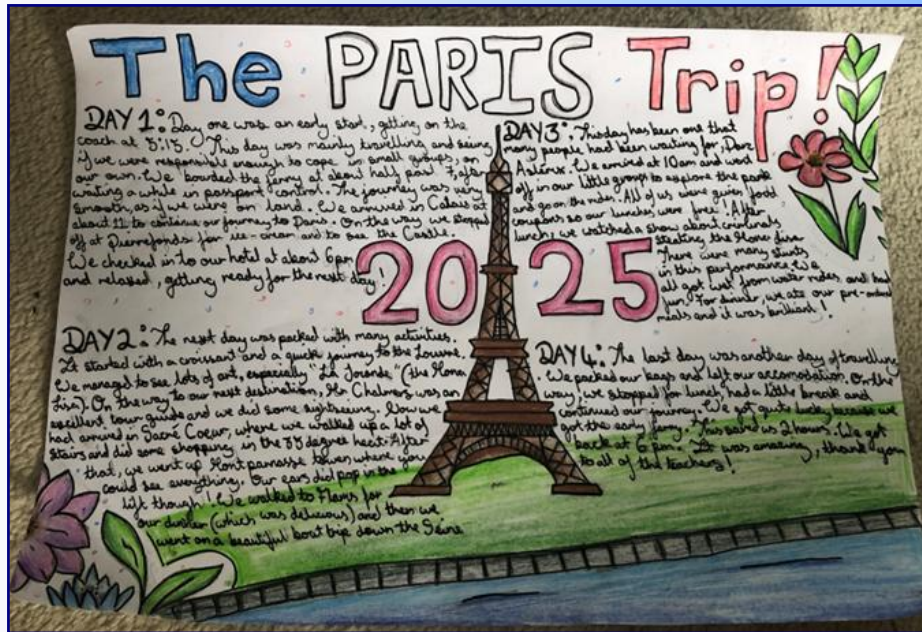 The PARIS Trip!
DAY 1: Day one was an early start, getting on the
coach at 3:15. This day was mainly travelling and seeing
if we were responsible enough to cope in small groups, on
our own. We boarded the ferry at about half past 7, after
waiting a while in passport control. The journey was very
smooth, as if we were on land. We arrived in Calais at
about 11 to continue our journey to Paris. On the way we stopped
off at Pierrefonds for ice-cream and to see the Castle.
We checked in to our hotel at about 6pm
and relaxed, getting ready for the next day!
2025
DAY 2: The next day was packed with many activities.
It started with a croissant and a quick journey to the Louvre.
We managed to see lots of art, especially "La Joconde" (the Mona
Lisa). On the way to our next destination, Mr Chalmers was an
excellent tour guide and we did some sightseeing. Now we
had arrived in Sacré Coeur, where we walked up a lot of
stairs and did some shopping in the 33 degree heat. After
that, we went up Montparnasse tower where you
could see everything. Our ears did pop in the
lift though! We walked to Flams for
our dinner (which was delicious) and then we
went on a beautiful boat trip down the Seine
DAY 3: This day has been one that
many people had been waiting for, Parc
Asterix. We arrived at 10am and went
off in our little groups to explore the park
and go on the rides. All of us were given food
coupons so our lunches were free! After
lunch, we watched a show about criminals
stealing the Mona Lisa.
There were many stunts
in this performance. We
all got wet from water rides and had
fun. For dinner, we ate our pre-ordered
meals and it was brilliant!
DAY 4: The last day was another day of travelling
We packed our bags and left our accomodation. On the
way, we stopped for lunch, had a little break and
continued our journey. We got quite lucky, because we
got the early ferry. This saved us 2 hours. We got
back at 6 pm. It was amazing, thank you
to all of the teachers!